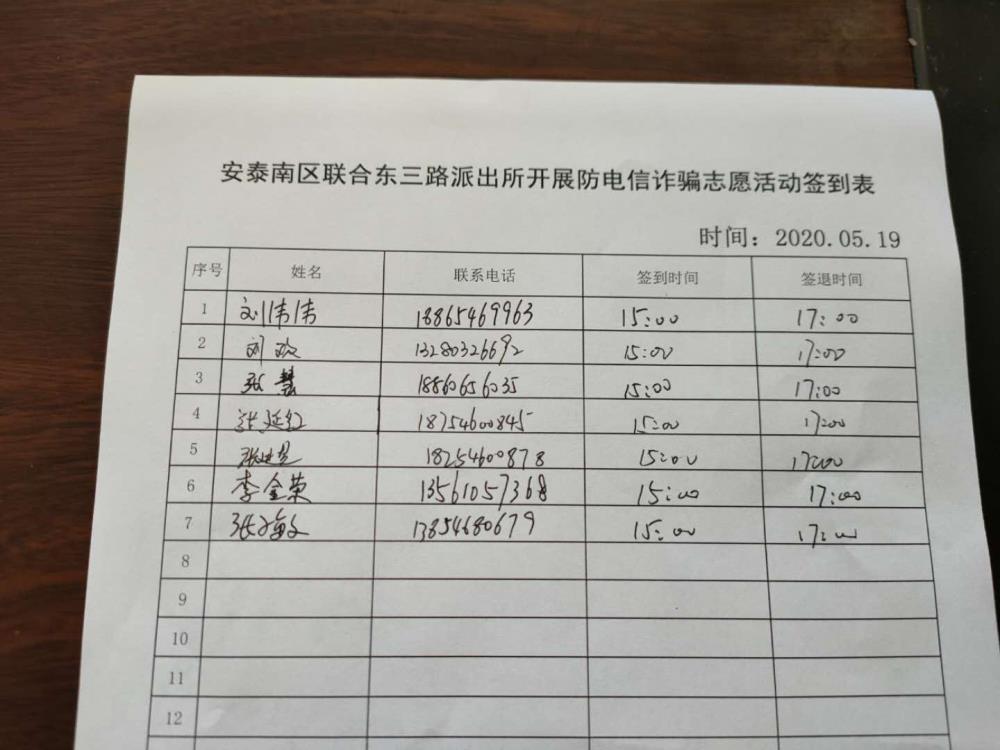 安泰南区联合东三路派出所开展防电信诈骗志愿活动签到表
时间：2020.05.19
序号 姓名 联系电话 签到时间 签退时间
1 刘伟伟 18865469963 15:00 17:00
2 刘欢 13280326692 15:00 17:00
3 张慧 18860656035 15:00 17:00
4 张延红 18754600845 15:00 17:00
5 18254600878 15:00 17:00
6 李金荣 13561057368 15:00 17:00
7 张敏 13854680679 15:00 17:00
8
9
10
11
12